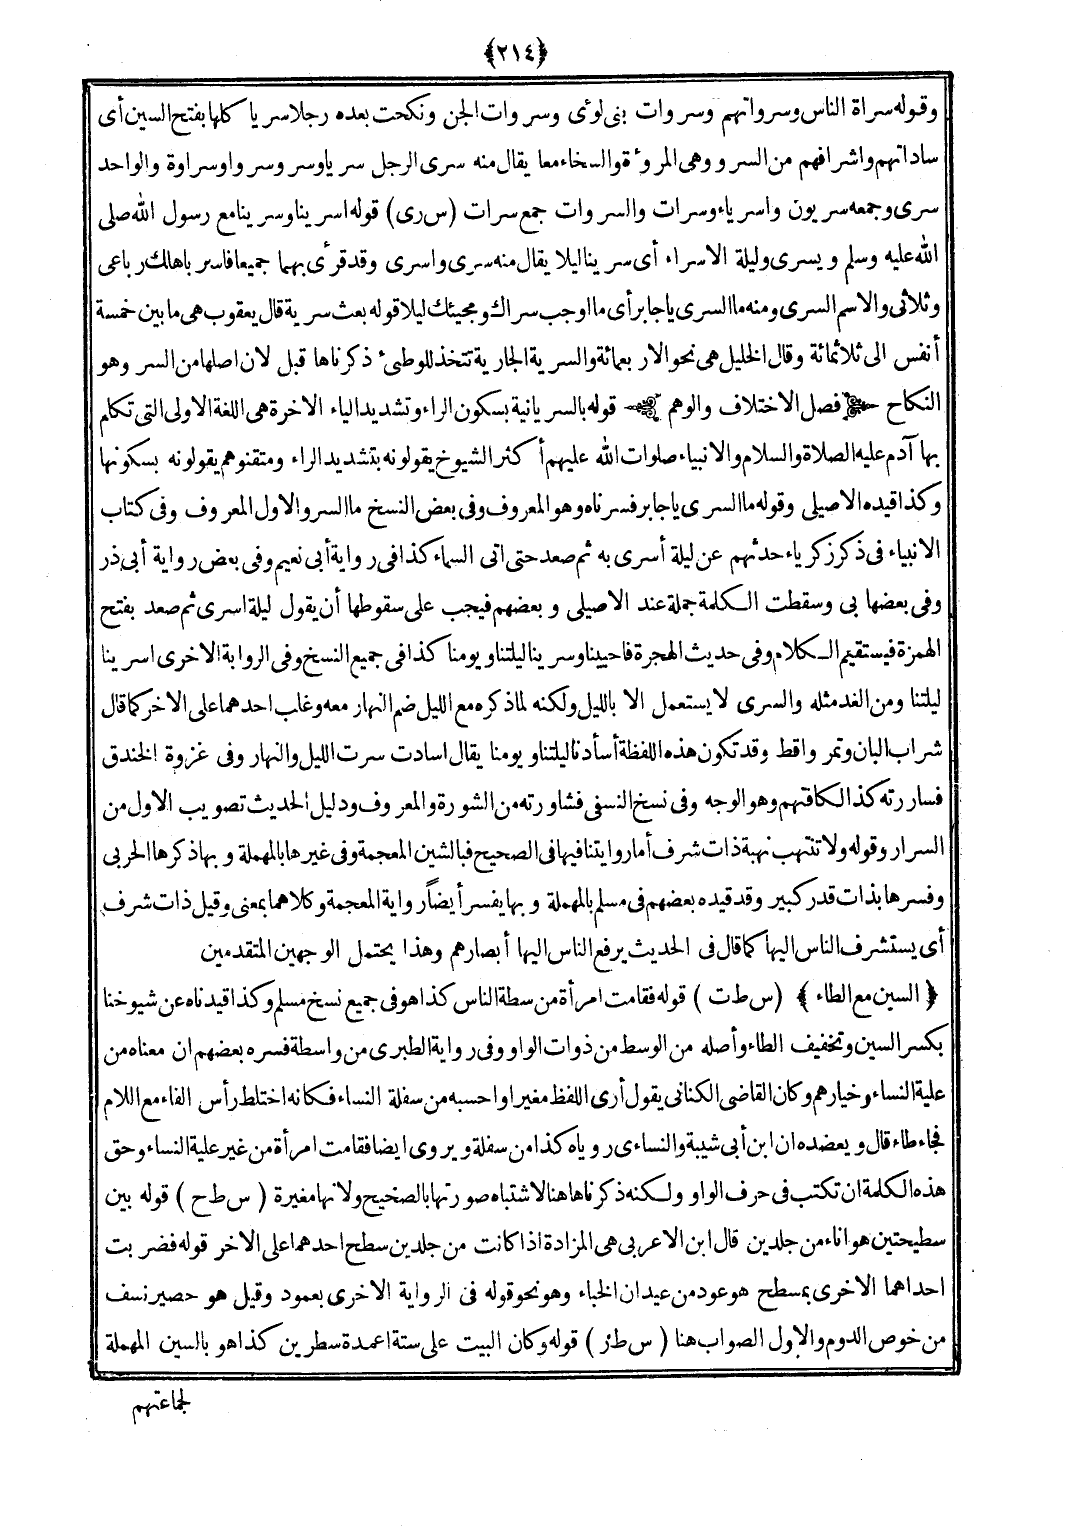 ﴿٢١٤﴾
وقوله سراة الناس وسرواتهم وسروات بنى لوئى وسروات الجن ونكحت بعده رجلا سريا كلها بفتح السين أى
ساداتهم واشرافهم من السرو وهى المروءة والسخاء معا يقال منه سرى الرجل سرياوسروسرواوسراوة والواحد
سرى وجمعه سريون واسرياء وسرات والسروات جمع سرات (س رى) قوله اسرينا وسرينا مع رسول الله صلى
الله عليه وسلم ويسرى وليلة الاسراء أى سرينا ليلا يقال منه سرى واسرى وقد قرأى بهما جميعا فاسر باهلك رباعى
وثلاثى والاسم السرى ومنه ما السرى ياجابر أى ما اوجب سراك ومجيئك ليلا قوله بعث سرية قال يعقوب هى مابين خمسة
أنفس الى ثلاثمائة وقال الخليل هى نحو الاربعمائة والسرية الجارية تتخذ للوطىء ذكرناها قبل لان اصلها من السر وهو
النكاح ﴿فصل الاختلاف والوهم﴾ قوله بالسريانية بسكون الراء وتشديد الياء الاخرة هى اللغة الاولى التى تكلم
بها آدم عليه الصلاة والسلام والانبياء صلوات الله عليهم أكثر الشيوخ يقولونه بتشديد الراء ومتقنوهم يقولونه بسكونها
وكذا قيده الاصيلى وقوله ما السرى ياجابر فسرناه وهو المعروف وفى بعض النسخ ما السر والاول المعروف وفى كتاب
الانبياء فى ذكر زكرياء حدثهم عن ليلة أسرى به ثم صعد حتى اتى السماء كذا فى رواية أبى نعيم وفى بعض رواية أبى ذر
وفى بعضها بى وسقطت الكلمة جملة عند الاصيلى وبعضهم فيجب على سقوطها أن يقول ليلة اسرى ثم صعد بفتح
الهمزة فيستقيم الكلام وفى حديث الهجرة فاحيينا وسرينا ليلتنا ويومنا كذا فى جميع النسخ وفى الرواية الاخرى اسرينا
ليلتنا ومن الغد مثله والسرى لا يستعمل الا بالليل ولكنه لما ذكره مع الليل ضم النهار معه وغلب احدهما على الاخر كما قال
شراب البان وتمر واقط وقد تكون هذه اللفظة أسأدنا ليلتنا ويومنا يقال اسادت سرت الليل والنهار وفى غزوة الخندق
فساررته كذا لكافتهم وهو الوجه وفى نسخ النسفى فشاورته من الشورة والمعروف ودليل الحديث تصويب الاول من
السرار وقوله ولا تنتهب نهبة ذات شرف أما روايتنا فيها فى الصحيح فبالشين المعجمة وفى غيرها بالمهملة وبها ذكرها الحربى
وفسرها بذات قدر كبير وقد قيده بعضهم فى مسلم بالمهملة وبها يفسر أيضاً رواية المعجمة وكلاهما بمعنى وقيل ذات شرف
أى يستشرف الناس اليها كما قال فى الحديث يرفع الناس اليها أبصارهم وهذا يحتمل الوجهين المتقدمين
﴿السين مع الطاء﴾ (س ط ت) قوله فقامت امرأة من سطة الناس كذا هو فى جميع نسخ مسلم وكذا قيدناه عن شيوخنا
بكسر السين وتخفيف الطاء وأصله من الوسط من ذوات الواو وفى رواية الطبرى من واسطة فسره بعضهم ان معناه من
علية النساء وخيارهم وكان القاضى الكنانى يقول أرى اللفظ مغيرا واحسبه من سفلة النساء فكانه اختلط رأس الفاء مع اللام
فجاء طاء قال ويعضده ان ابن أبى شيبة والنساءى روياه كذا من سفلة ويروى ايضا فقامت امرأة من غير علية النساء وحق
هذه الكلمة ان تكتب فى حرف الواو ولكنه ذكرناها هنا لاشتباه صورتها بالصحيح ولانها مغيرة (س ط ح) قوله بين
سطيحتين هو اناء من جلدين قال ابن الاعربى هى المزادة اذا كانت من جلدين سطح احدهما على الاخر قوله فضربت
احداهما الاخرى بمسطح هو عود من عيدان الخباء وهو نحو قوله فى الرواية الاخرى بعمود وقيل هو حصير نسف
من خوص الدوم والاول الصواب هنا (س ط ر) قوله وكان البيت على ستة اعمدة سطرين كذا هو بالسين المهملة
لجماعتهم